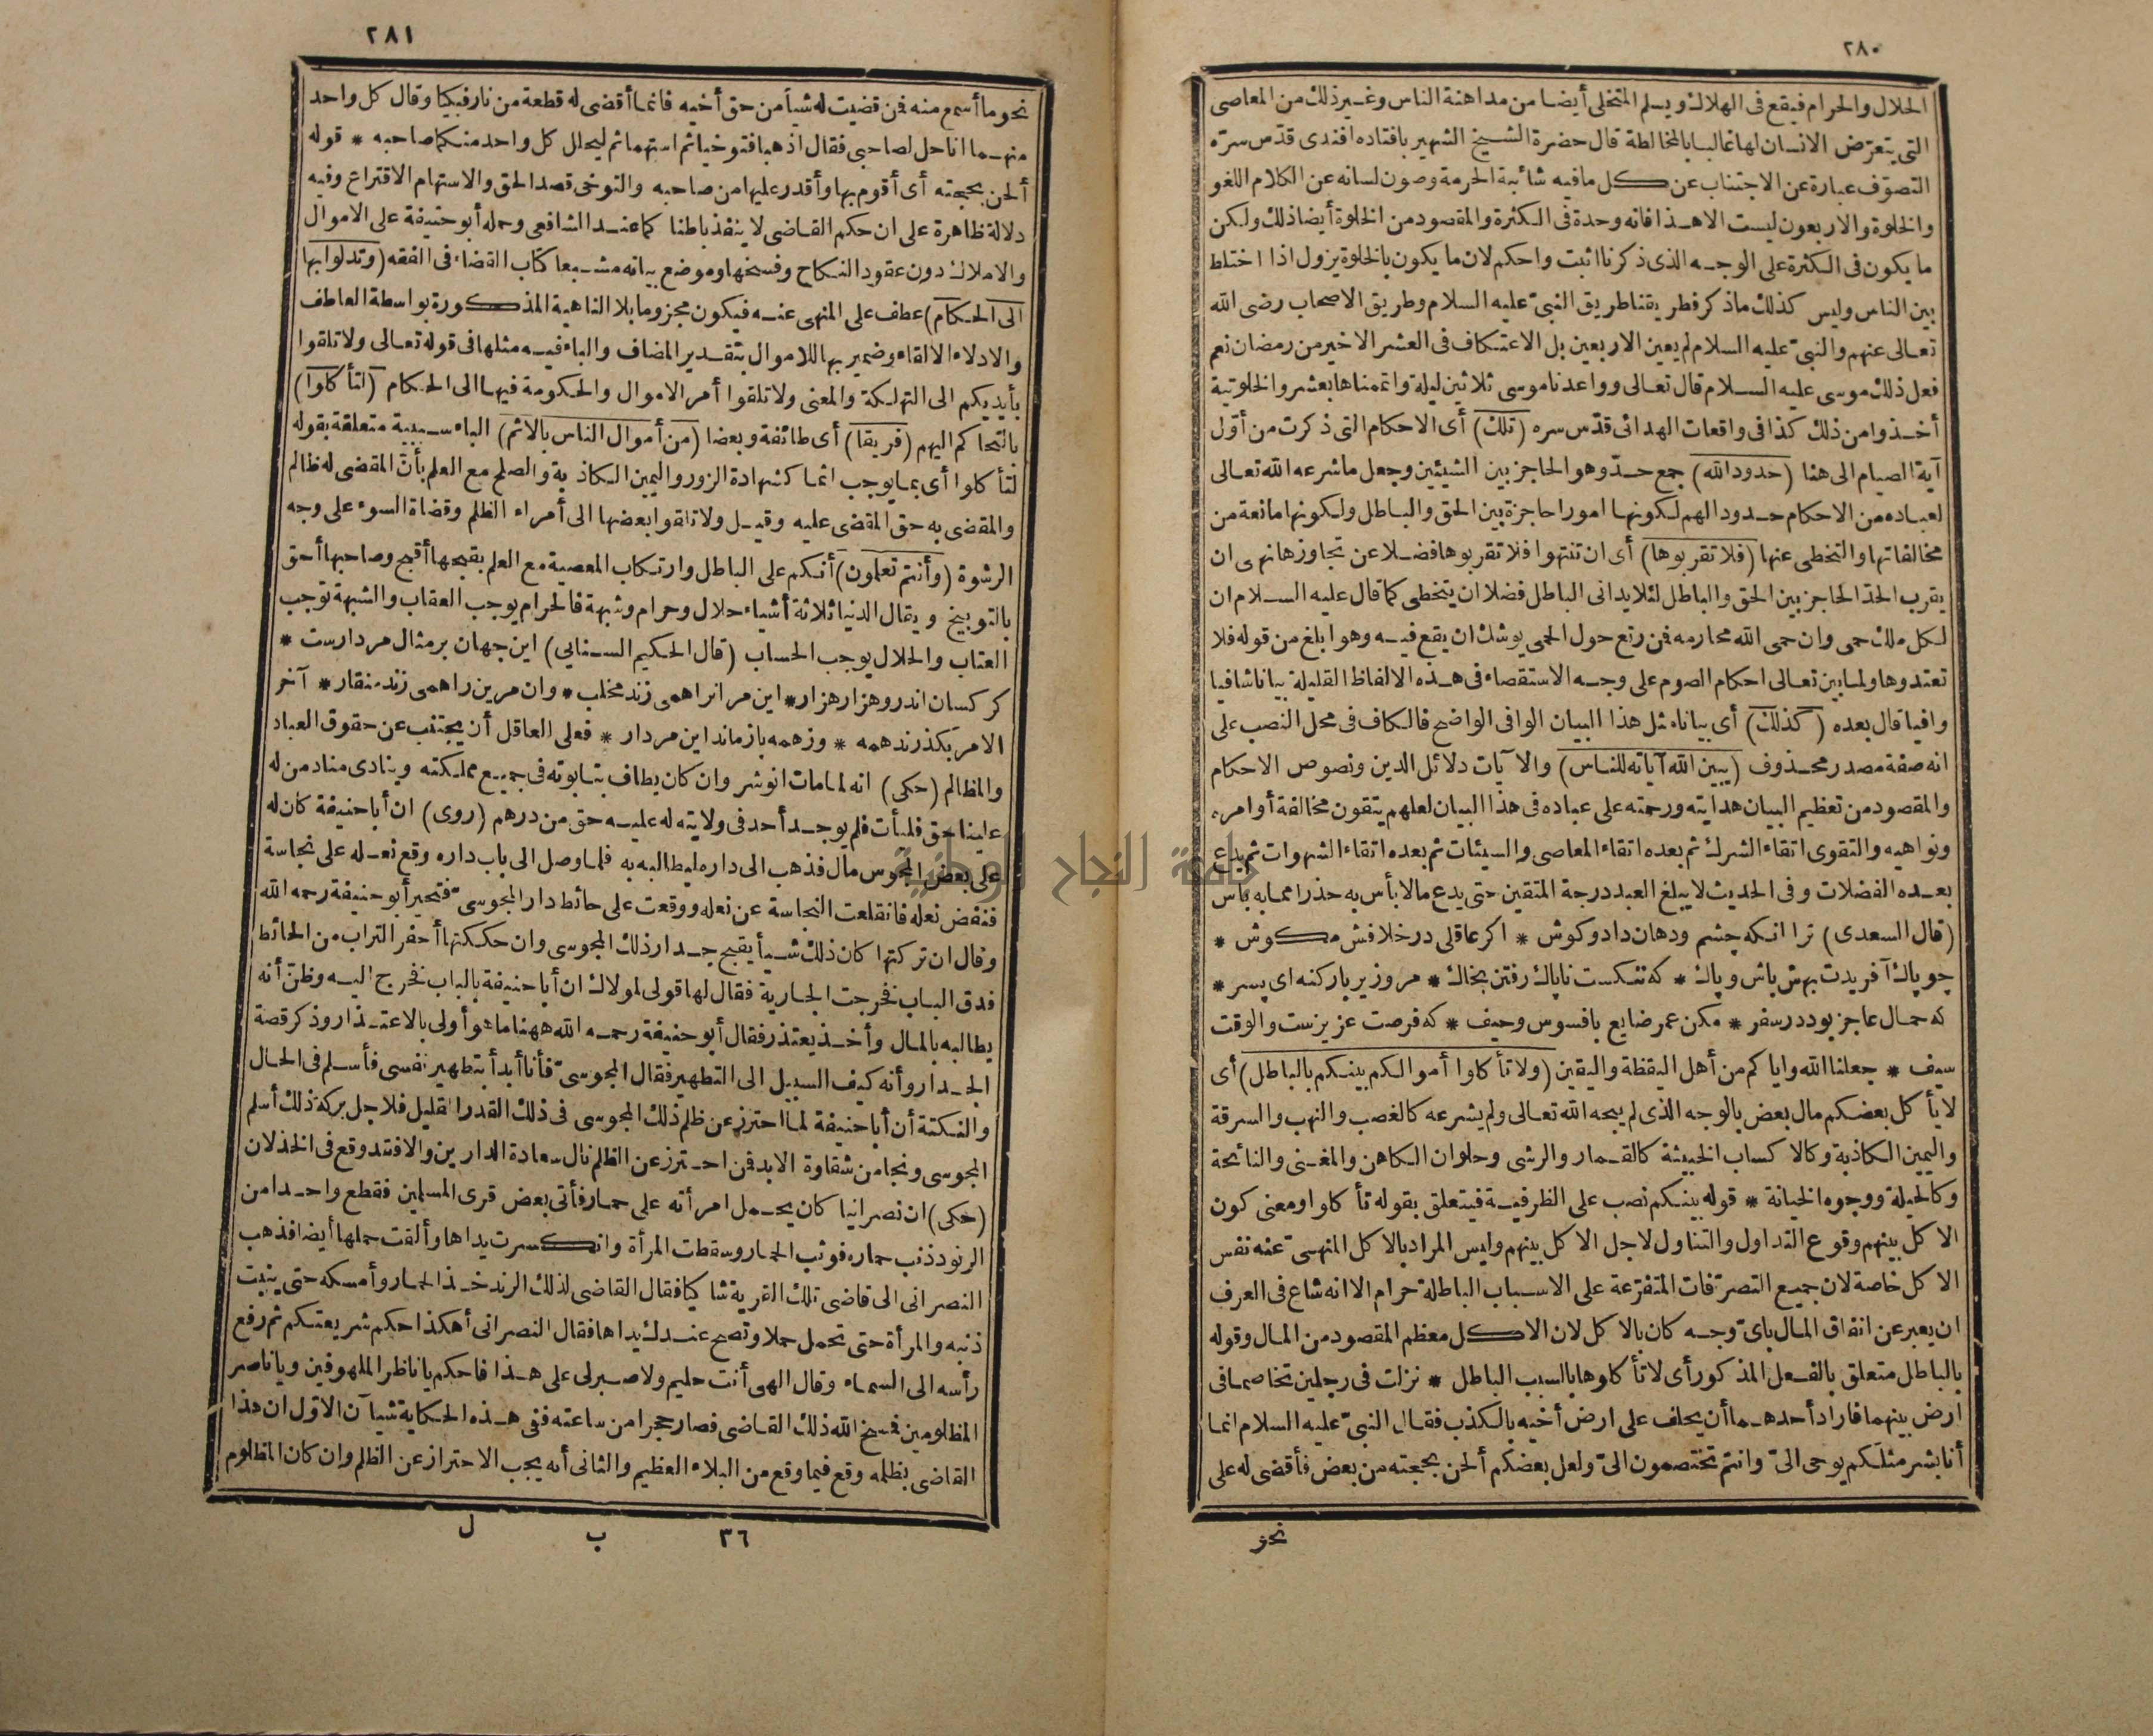 ٢٨٠
الحلال والحرام فيقع فى الهلاك ويسلم المتخلى أيضا من مداهنة الناس وغير ذلك من المعاصى
التى يتعرّض الانسان لها غالبا بالمخالطة قال حضرة الشيخ الشهير بافتاده افندى قدّس سرّه
التصوّف عبارة عن الاجتناب عن كل ما فيه شائبة الحرمة وصون لسانه عن الكلام اللغو
والخلوة والاربعون ليست الا هذا فانه وحدة فى الكثرة والمقصود من الخلوة أيضا ذلك ولكن
ما يكون فى الكثرة على الوجه الذى ذكرنا اثبت واحكم لان ما يكون بالخلوة يزول اذا اختلط
بين الناس وليس كذلك ماذكر فطريقنا طريق النبىّ عليه السلام وطريق الاصحاب رضى الله
تعالى عنهم والنبىّ عليه السلام لم يعين الاربعين بل الاعتكاف فى العشر الاخير من رمضان نعم
فعل ذلك موسى عليه السلام قال تعالى وواعدنا موسى ثلاثين ليلة واتممناها بعشر والخلوتية
أخذوا من ذلك كذا فى واقعات الهدائى قدّس سره (تلك) أى الاحكام التى ذكرت من أوّل
آية الصيام الى هنا (حدود الله) جمع حدّ وهو الحاجز بين الشيئين وجعل ما شرعه الله تعالى
لعباده من الاحكام حدودا لهم لكونها امورا حاجزة بين الحق والباطل ولكونها مانعة من
مخالفاتها والتخطى عنها (فلا تقربوها) أى ان تنتهوا فلا تقربوها فضلا عن تجاوزها نهى ان
يقرب الحدّ الحاجز بين الحق والباطل لئلا يدانى الباطل فضلا ان يتخطى كما قال عليه السلام ان
لكل ملك حمى وان حمى الله محارمه فمن رتع حول الحمى يوشك ان يقع فيه وهو ابلغ من قوله فلا
تعتدوها ولما بين تعالى احكام الصوم على وجه الاستقصاء فى هذه الالفاظ القليلة بيانا شافيا
وافيا قال بعده (كذلك) أى بيانا مثل هذا البيان الوافى الواضح فالكاف فى محل النصب على
انه صفة مصدر محذوف (يبين الله آياته للناس) والآيات دلائل الدين ونصوص الاحكام
والمقصود من تعظيم البيان هدايته ورحمته على عباده فى هذا البيان لعلهم يتقون مخالفة أوامره
ونواهيه والتقوى اتقاء الشرك ثم بعده اتقاء المعاصى والسيئات ثم بعده اتقاء الشهوات ثم يدع
بعده الفضلات وفى الحديث لا يبلغ العبد درجة المتقين حتى يدع ما لا بأس به حذرا مما به بأس
(قال السعدى) ترا انكه چشم ودهان داد وكوش * اكر عاقلى در خلافش مكوش *
چو پاك آفريدت بهش باش وپاك * كه ننكست ناپاك رفتن بخاك * مرو زير بار كنه اى پسر *
كه حمال عاجز بود در سفر * مكن عمر ضايع بافسوس وحيف * كه فرصت عزيزست والوقت
سيف * جعلنا الله واياكم من أهل اليقظة واليقين (ولا تأكلوا أموالكم بينكم بالباطل) أى
لا يأكل بعضكم مال بعض بالوجه الذى لم يبحه الله تعالى ولم يشرعه كالغصب والنهب والسرقة
واليمين الكاذبة وكالاكساب الخبيثة كالقمار والرشى وحلوان الكاهن والمغنى والنائحة
وكالحيلة ووجوه الخيانة * قوله بينكم نصب على الظرفية فيتعلق بقوله تأكلوا ومعنى كون
الاكل بينهم وقوع التداول والتناول لاجل الاكل بينهم وليس المراد بالاكل المنهىّ عنه نفس
الاكل خاصة لان جميع التصرّفات المتفرّعة على الاسباب الباطلة حرام الا انه شاع فى العرف
ان يعبر عن انفاق المال باىّ وجه كان بالاكل لان الاكل معظم المقصود من المال وقوله
بالباطل متعلق بالفعل المذكور أى لا تأكلوها بالسبب الباطل * نزلت فى رجلين تخاصما فى
ارض بينهما فاراد أحدهما أن يحلف على ارض أخيه بالكذب فقال النبىّ عليه السلام انما
أنا بشر مثلكم يوحى الىّ وانتم تختصمون الىّ ولعل بعضكم ألحن بحجته من بعض فأقضى له على
نحو
٢٨١
نحو ما أسمع منه فمن قضيت له شيأ من حق أخيه فانما أقضى له قطعة من نار فبكيا وقال كل واحد
منهما انا حل لصاحبى فقال اذهبا فتوخيا ثم استهما ثم ليحلل كل واحد منكما صاحبه * قوله
ألحن بحجته أى أقوم بها وأقدر عليها من صاحبه والتوخى قصد الحق والاستهام الاقتراع وفيه
دلالة ظاهرة على ان حكم القاضى لا ينفذ باطنا كما عند الشافعى وحمله أبو حنيفة على الاموال
والاملاك دون عقود النكاح وفسخها وموضع بيانه مشبعا كتاب القضاء فى الفقه (وتدلوا بها
الى الحكام) عطف على المنهى عنه فيكون مجزوما بلا الناهية المذكورة بواسطة العاطف
والادلاء الالقاء وضمير بها للاموال بتقدير المضاف والباء فيه مثلها فى قوله تعالى ولا تلقوا
بأيديكم الى التهلكة والمعنى ولا تلقوا أمر الاموال والحكومة فيها الى الحكام (لتأكلوا)
بالتحاكم اليهم (فريقا) أى طائفة وبعضا (من أموال الناس بالاثم) الباء سببية متعلقة بقوله
لتأكلوا أى بما يوجب اثما كشهادة الزور واليمين الكاذبة والصلح مع العلم بأنّ المقضى له ظالم
والمقضى به حق المقضى عليه وقيل ولا تلقوا بعضها الى أمراء الظلم وقضاة السوء على وجه
الرشوة (وأنتم تعلمون) أنكم على الباطل وارتكاب المعصية مع العلم بقبحها أقبح وصاحبها أحق
بالتوبيخ ويقال الدنيا ثلاثة أشياء حلال وحرام وشبهة فالحرام يوجب العقاب والشبهة توجب
العتاب والحلال يوجب الحساب (قال الحكيم السنايى) اين جهان بر مثال مردارست *
كركسان اندرو هزار هزار * اين مر انرا همى زند مخلب * وان مر ين را همى زند منقار * آخر
الامر بكذرند همه * وز همه باز ماند اين مردار * فعلى العاقل أن يجتنب عن حقوق العباد
والمظالم (حكى) انه لما مات انوشر وان كان يطاف بتابوته فى جميع مملكته وينادى مناد من له
علينا حق فليأت فلم يوجد أحد فى ولايته له عليه حق من درهم (روى) ان أبا حنيفة كان له
على بعض المجوس مال فذهب الى داره ليطالبه به فلما وصل الى باب داره وقع نعله على نجاسة
فنفض نعله فانقلعت النجاسة عن نعله ووقعت على حائط دار المجوسىّ فتحير أبو حنيفة رحمه الله
وقال ان تركتها كان ذلك شيأ يقبح جدار ذلك المجوسى وان حككتها أحفر التراب من الحائط
فدق الباب فخرجت الجارية فقال لها قولى لمولاك ان أبا حنيفة بالباب فخرج اليه وظنّ أنه
يطالبه بالمال وأخذ يعتذر فقال أبو حنيفة رحمه الله ههنا ما هو أولى بالاعتذار وذكر قصة
الجدار وأنه كيف السبيل الى التطهير فقال المجوسىّ فأنا أبدأ بتطهير نفسى فأسلم فى الحال
والنكتة أن أبا حنيفة لما احترز عن ظلم ذلك المجوسى فى ذلك القدر القليل فلاجل بركة ذلك أسلم
المجوسى ونجا من شقاوة الابد فمن احترز عن الظلم نال سعادة الدارين والا فقد وقع فى الخذلان
(حكى) ان نصرانيا كان يحمل امرأته على حمار فأتى بعض قرى المسلمين فقطع واحد من
الرنود ذنب حماره فوثب الحمار وسقطت المرأة وانكسرت يداها وألقت حملها أيضا فذهب
النصرانى الى قاضى تلك القرية شاكيا فقال القاضى لذلك الرند خذ الحمار وأمسكه حتى ينبت
ذنبه والمرأة حتى تحمل حملا وتصح عندك يداها فقال النصرانى أهكذا حكم شريعتكم ثم رفع
رأسه الى السماء وقال الهى أنت حليم ولا صبر لى على هذا فاحكم يا ناظر الملهوفين ويا ناصر
المظلومين فمسخ الله ذلك القاضى فصار حجرا من ساعته ففى هذه الحكاية شيآن الاوّل ان هذا
القاضى بظلمه وقع فيما وقع من البلاء العظيم والثانى أنه يجب الاحتراز عن الظلم وان كان المظلوم
٣٦ ب ل
جامعة النجاح الوطنية